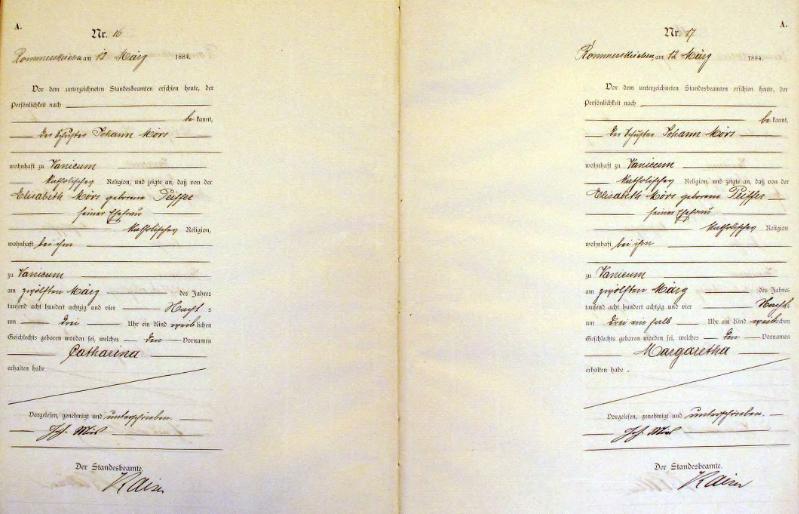 A.
Nr. 16
Rommerskirchen am 12 März 1884.
Vor dem unterzeichneten Standesbeamten erschien heute, der
Persönlichkeit nach
be kannt,
der Schuster Johann Mörs
wohnhaft zu Vanicum
katholischer Religion, und zeigte an, daß von der
Elisabeth Mörs geborene Peiffer
seiner Ehefrau
katholischer Religion,
wohnhaft bei ihm
zu Vanicum
am zwölften März des Jahres
tausend acht hundert achtzig und vier Nachts
um drei Uhr ein Kind weiblichen
Geschlechts geboren worden sei, welches den Vornamen
Catharina
erhalten habe
Vorgelesen, genehmigt und unterschrieben.
Joh. Mörs
Der Standesbeamte.
Kaiser
A.
Nr. 17
Rommerskirchen am 12 März 1884.
Vor dem unterzeichneten Standesbeamten erschien heute, der
Persönlichkeit nach
be kannt,
der Schuster Johann Mörs
wohnhaft zu Vanicum
katholischer Religion, und zeigte an, daß von der
Elisabeth Mörs geborene Peiffer
seiner Ehefrau
katholischer Religion,
wohnhaft bei ihm
zu Vanicum
am zwölften März des Jahres
tausend acht hundert achtzig und vier Nachts
um drei ein halb Uhr ein Kind weiblichen
Geschlechts geboren worden sei, welches den Vornamen
Margaretha
erhalten habe.
Vorgelesen, genehmigt und unterschrieben.
Joh. Mörs
Der Standesbeamte.
Kaiser